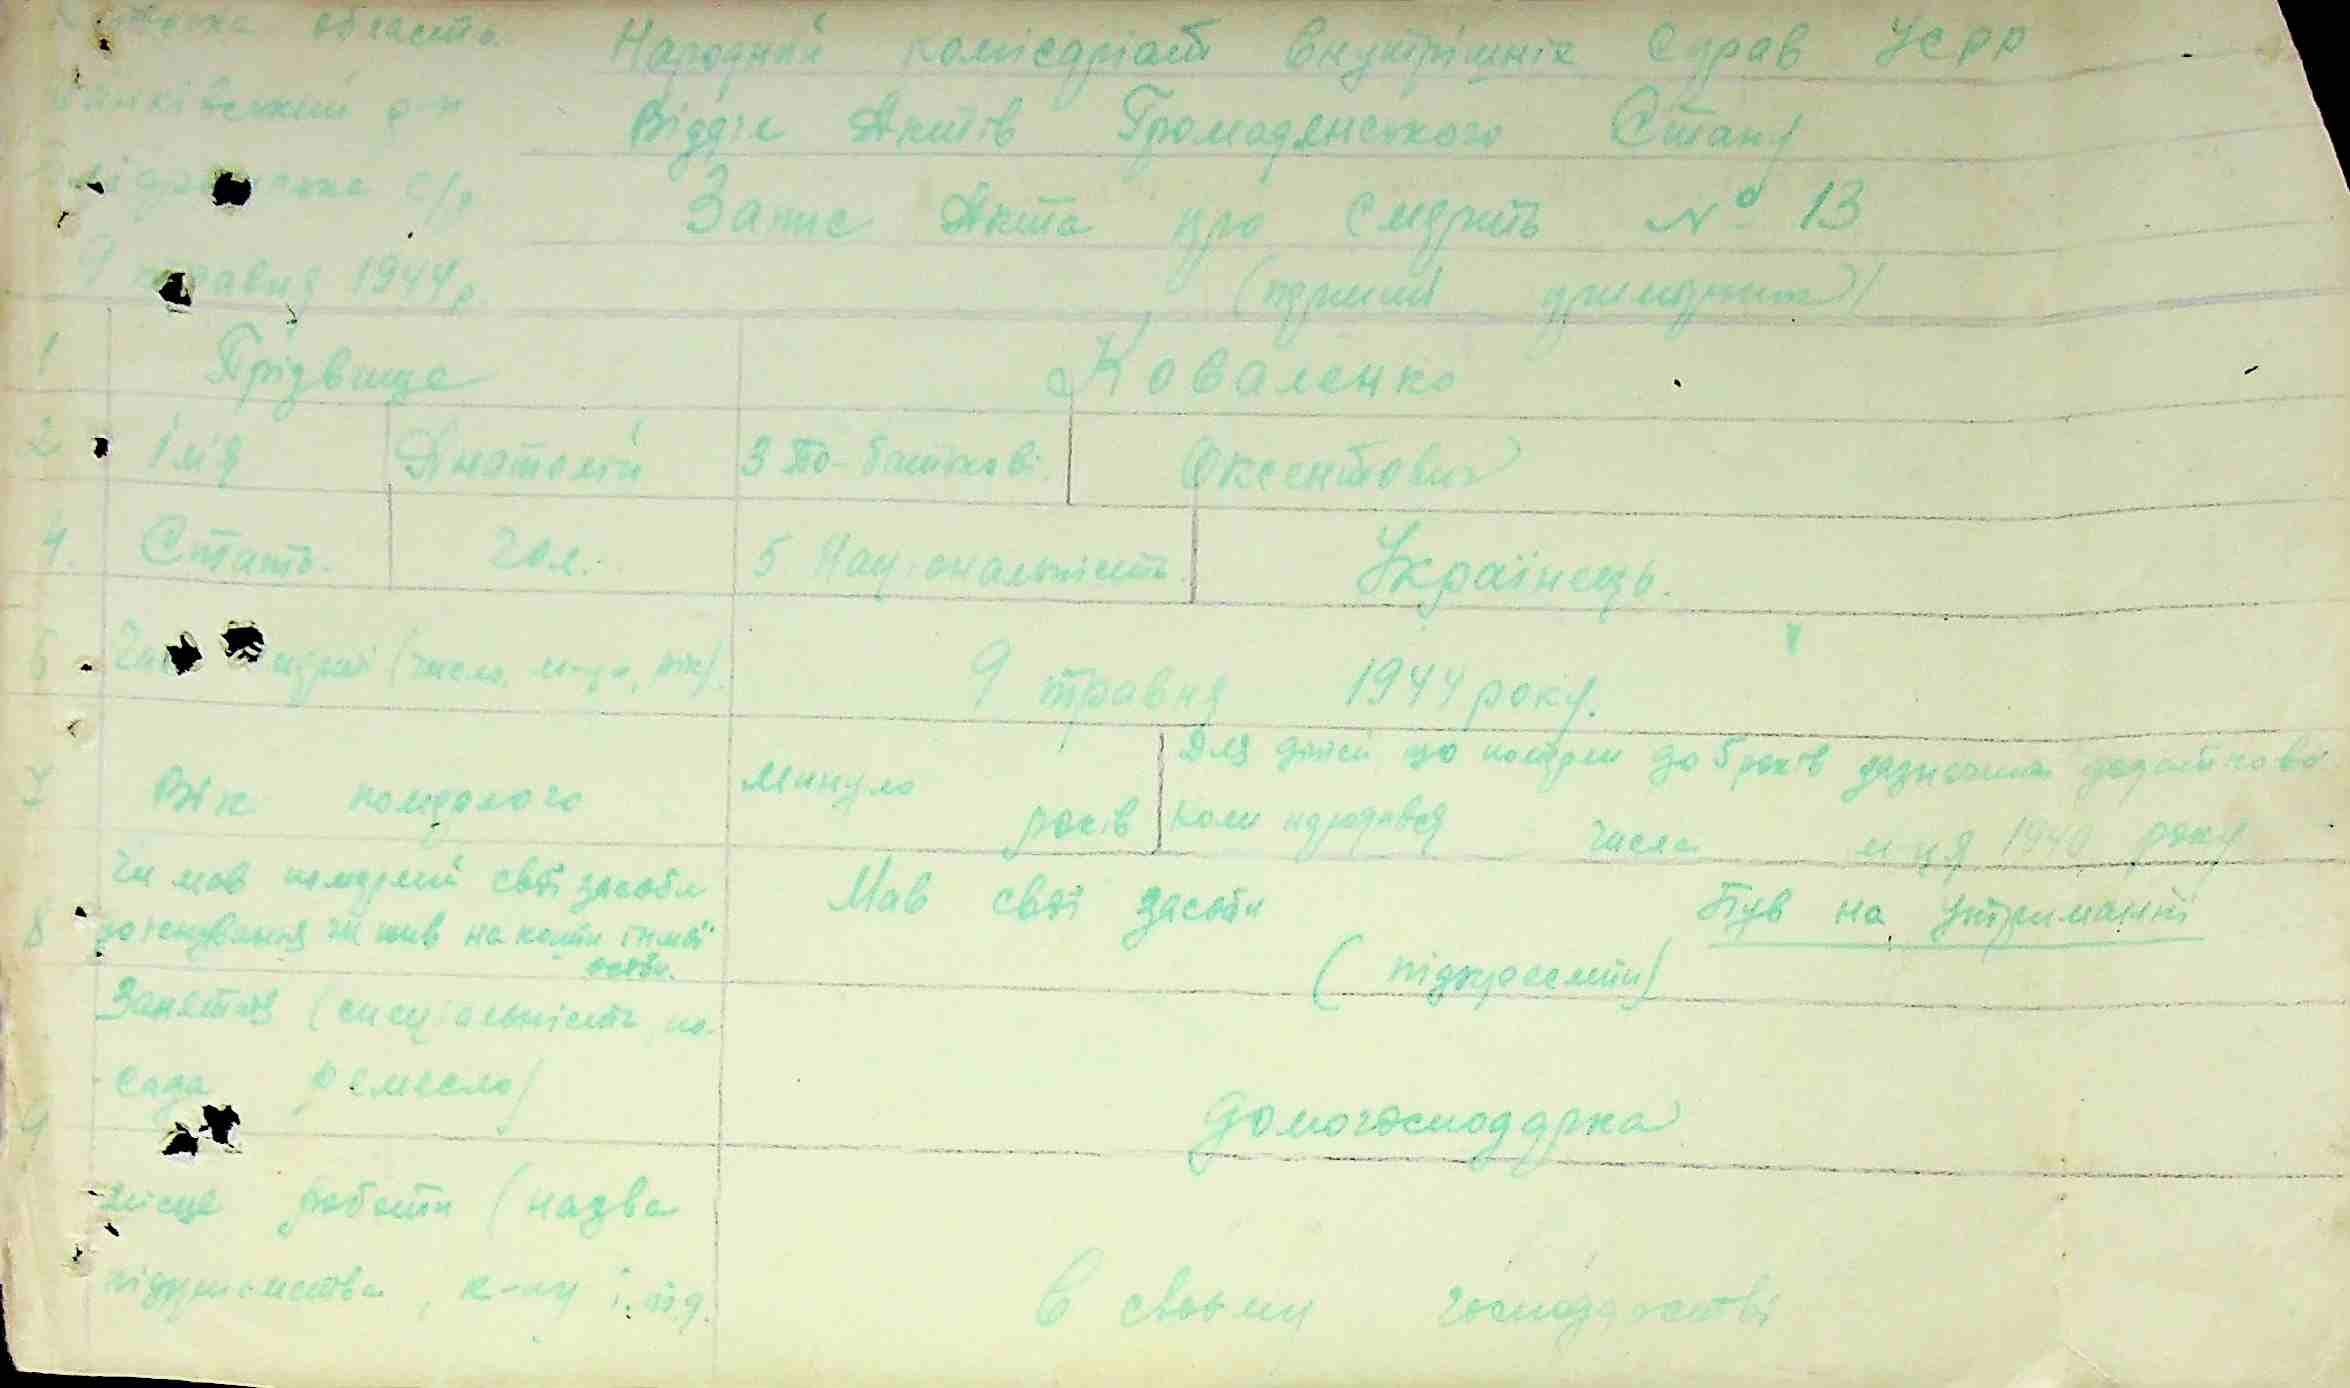 область
Народний комісаріат Внутрішніх Справ УСРР
р-н
Відділ Актів Громадянського Стану
с/р
Запис Акта про смерть № 13
9 травня 1944 р.
(перший примірник)
1 Прізвище Коваленко
2 Ім'я Анатолій 3 По-батькові Оксентович
4. Стать. чол. 5 Національність Українець.
6 Час смерті (число, м-ць, рік). 9 травня 1944 року.
7 Вік померлого Минуло років
Для дітей що померли до 5 років зазначити додатково
коли народився числа м-ця 194 року
8 Чи мав померлий свої засоби
до існування чи жив на кошти іншої
особи.
Мав свої засоби Був на утриманні
(підкреслити)
9 Заняття (спеціальність, по-
сада ремесло)
домогосподарка
місце роботи (назва
підприємства, к-пу і т.д.
В своєму господарстві